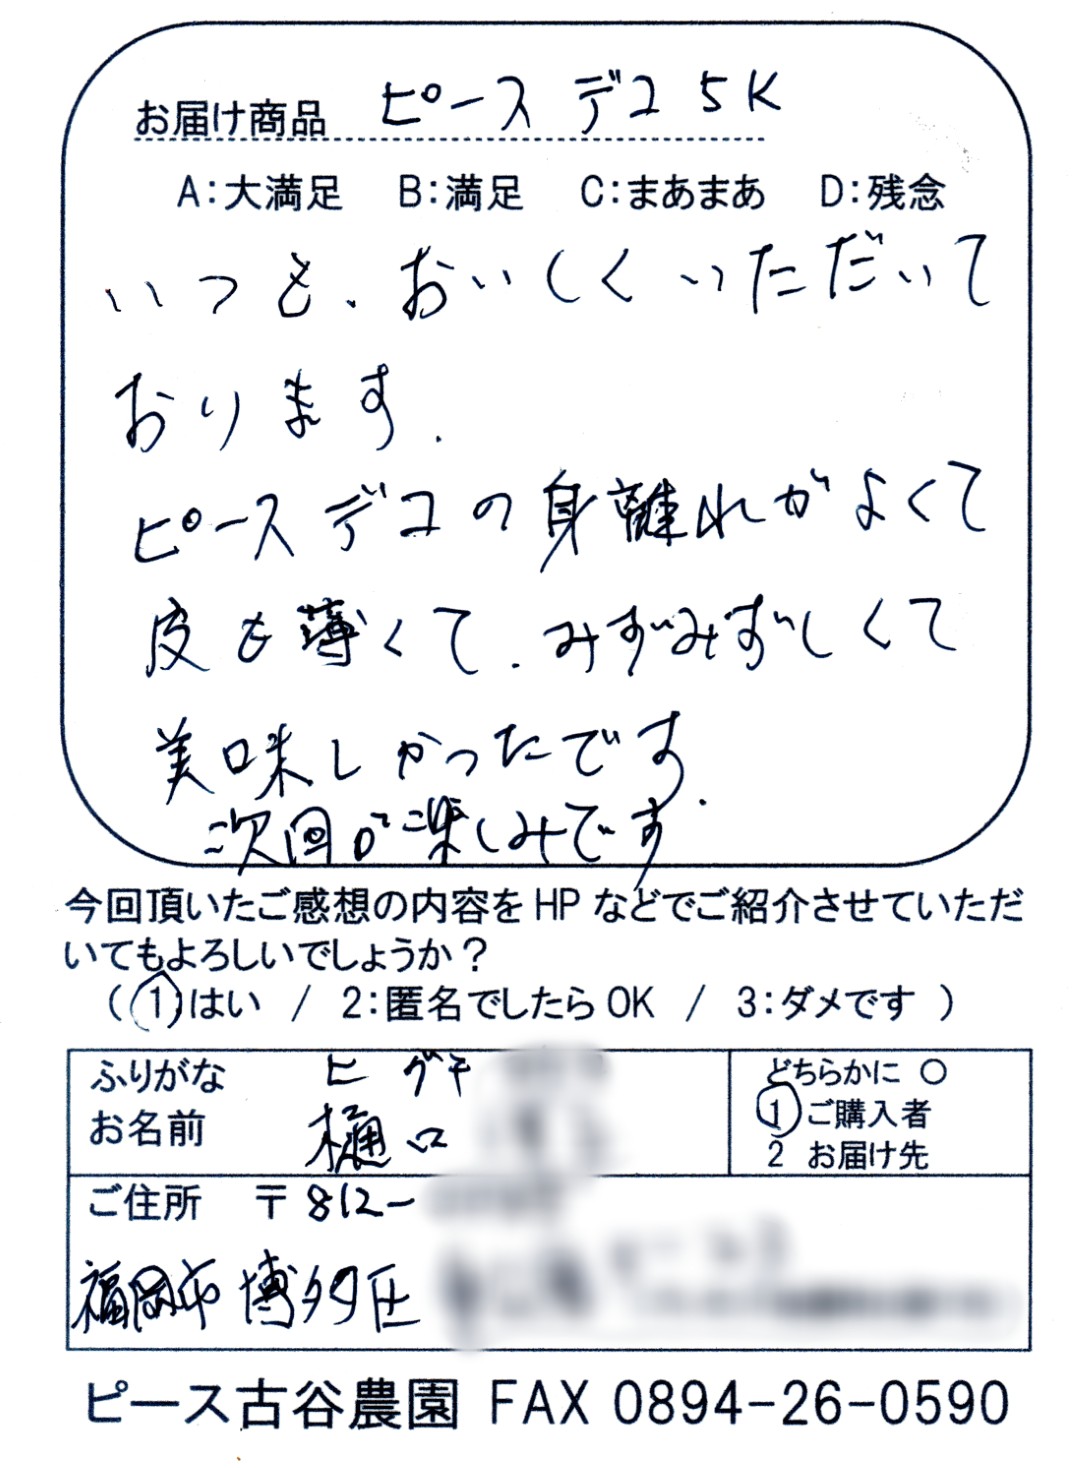 お届け商品 ピース デコ 5K
A:大満足 B:満足 C:まあまあ D:残念
いつも、おいしくいただいて
おります.
ピースデコの身離れがよくて
皮も薄くて、みずみずしくて
美味しかったです.
次回が楽しみです
今回頂いたご感想の内容をHPなどでご紹介させていただ
いてもよろしいでしょうか?
(1.はい / 2:匿名でしたらOK / 3:ダメです )
ふりがな ヒグチ
お名前 樋口
どちらかに ○
1 ご購入者
2 お届け先
ご住所 〒812-
福岡市博多区
ピース古谷農園 FAX 0894-26-0590